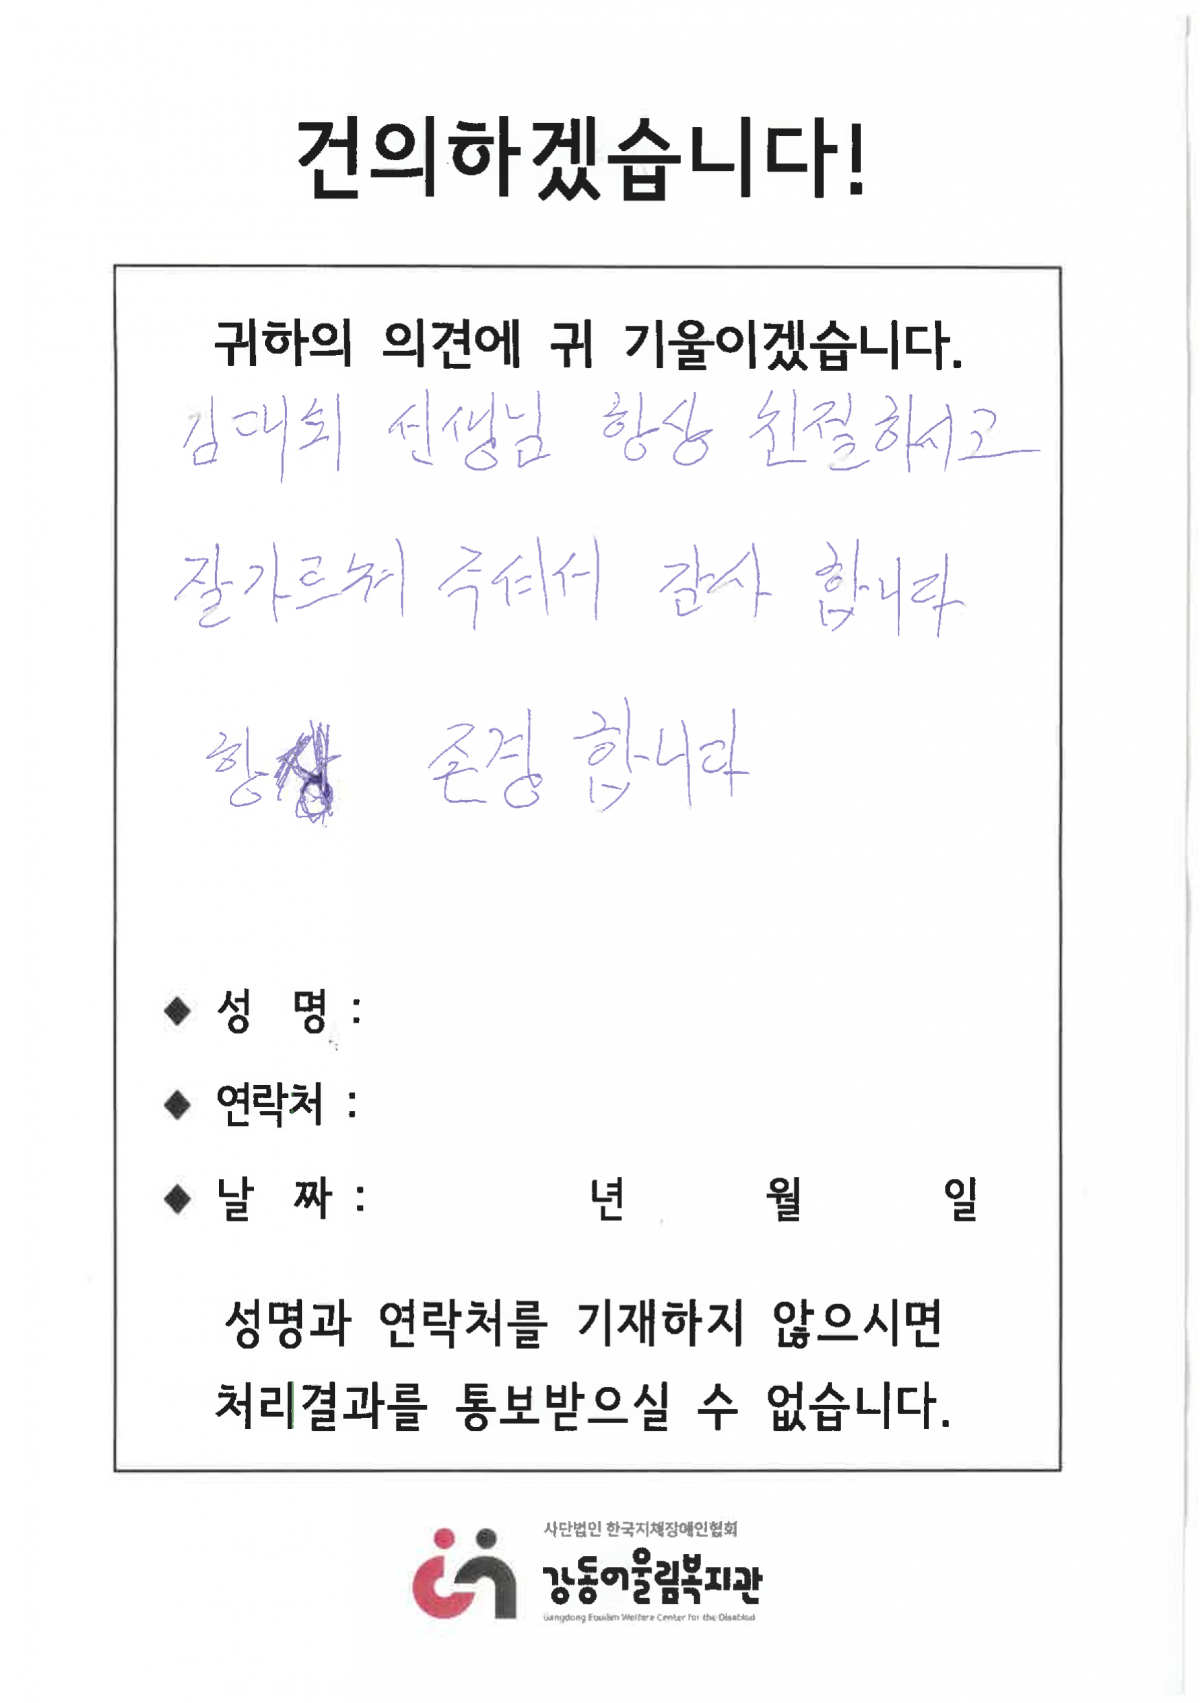 건의하겠습니다!
귀하의 의견에 귀 기울이겠습니다.
김대희 선생님 항상 친절하시고
잘가르쳐 주셔서 감사 합니다
항상 존경 합니다
◆ 성 명 :
◆ 연락처 :
◆ 날 짜 : 년 월 일
성명과 연락처를 기재하지 않으시면
처리결과를 통보받으실 수 없습니다.
사단법인 한국지체장애인협회
강동어울림복지관
Gangdong Eoullim Welfare Center for the Disabled